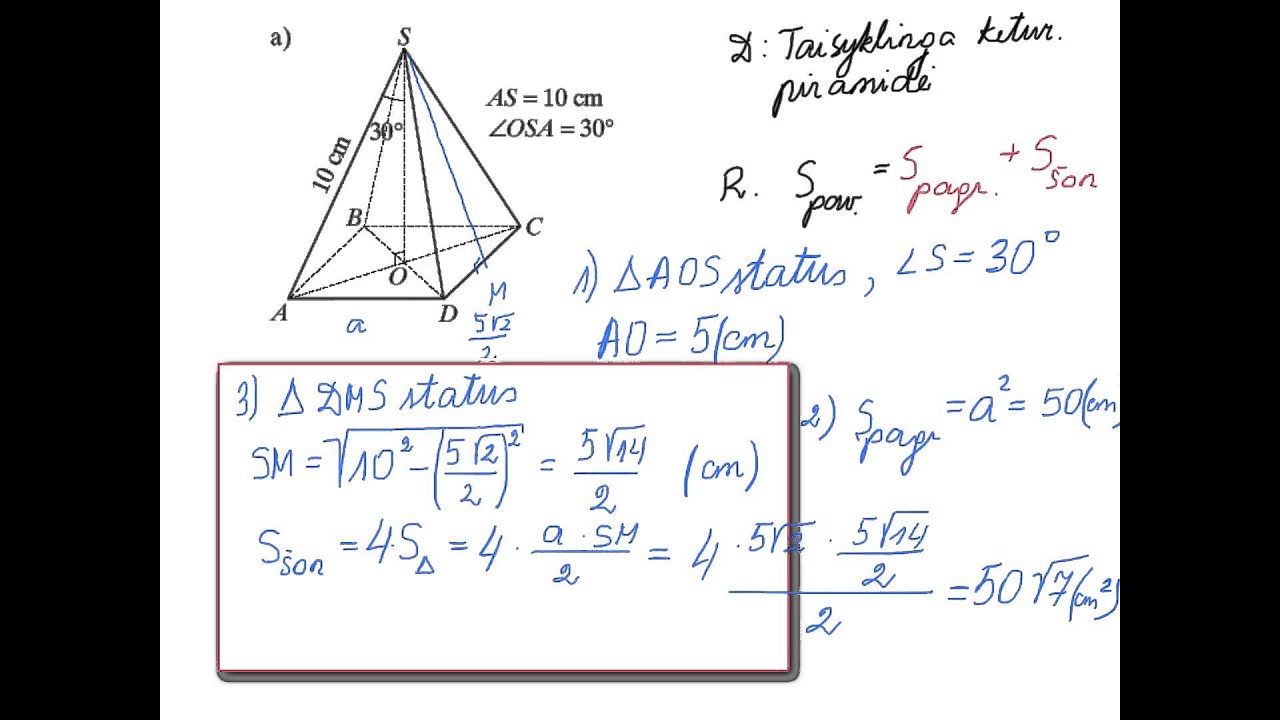 a)
S
AS = 10 cm
∠OSA = 30°
30°
10 cm
B
C
O
A
D
M
a
5√2/2
D: Taisyklinga ketur.
piramidė
R. S pav. = S pagr. + S šon
1) △AOS status, ∠S = 30°
AO = 5(cm)
2) S pagr = a² = 50(cm
3) △DMS status
SM = √(10² - (5√2/2)²) = 5√14/2 (cm)
S šon = 4·S△ = 4 · a · SM/2 = 4 · 5√2 · 5√14/2/2 = 50√7(cm²)